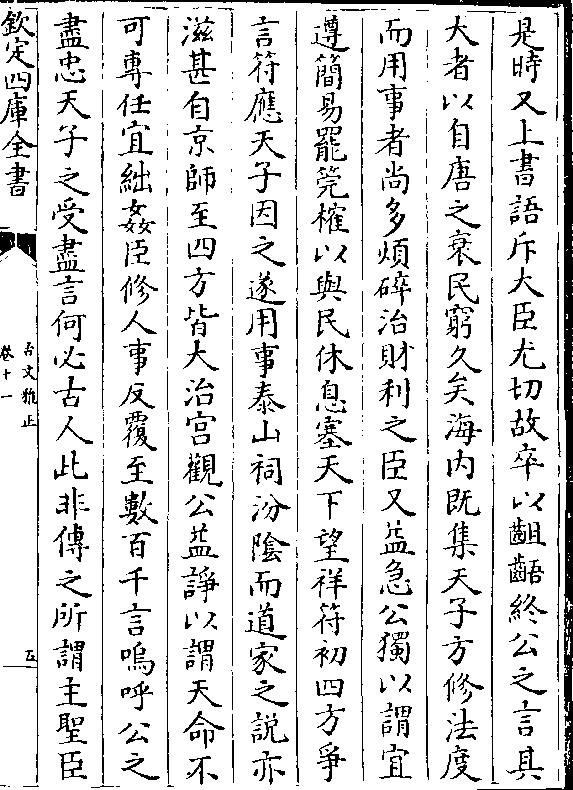 是時又上書語斥大臣尤切故卒以齟齬終公之言其
大者以自唐之衰民窮久矣海内既集天子方修法度
而用事者尚多煩碎治財利之臣又益急公獨以謂宜
遵簡易罷筦榷以與民休息塞天下望祥符初四方爭
言符應天子因之遂用事泰山祠汾隂而道家之說亦
滋甚自京師至四方皆大治宫觀公益諍以謂天命不
可專任宜絀姦臣修人事反覆至數百千言嗚呼公之
盡忠天子之受盡言何必古人此非傳之所謂主聖臣
欽定四庫全書
古文雅正
卷十一
五